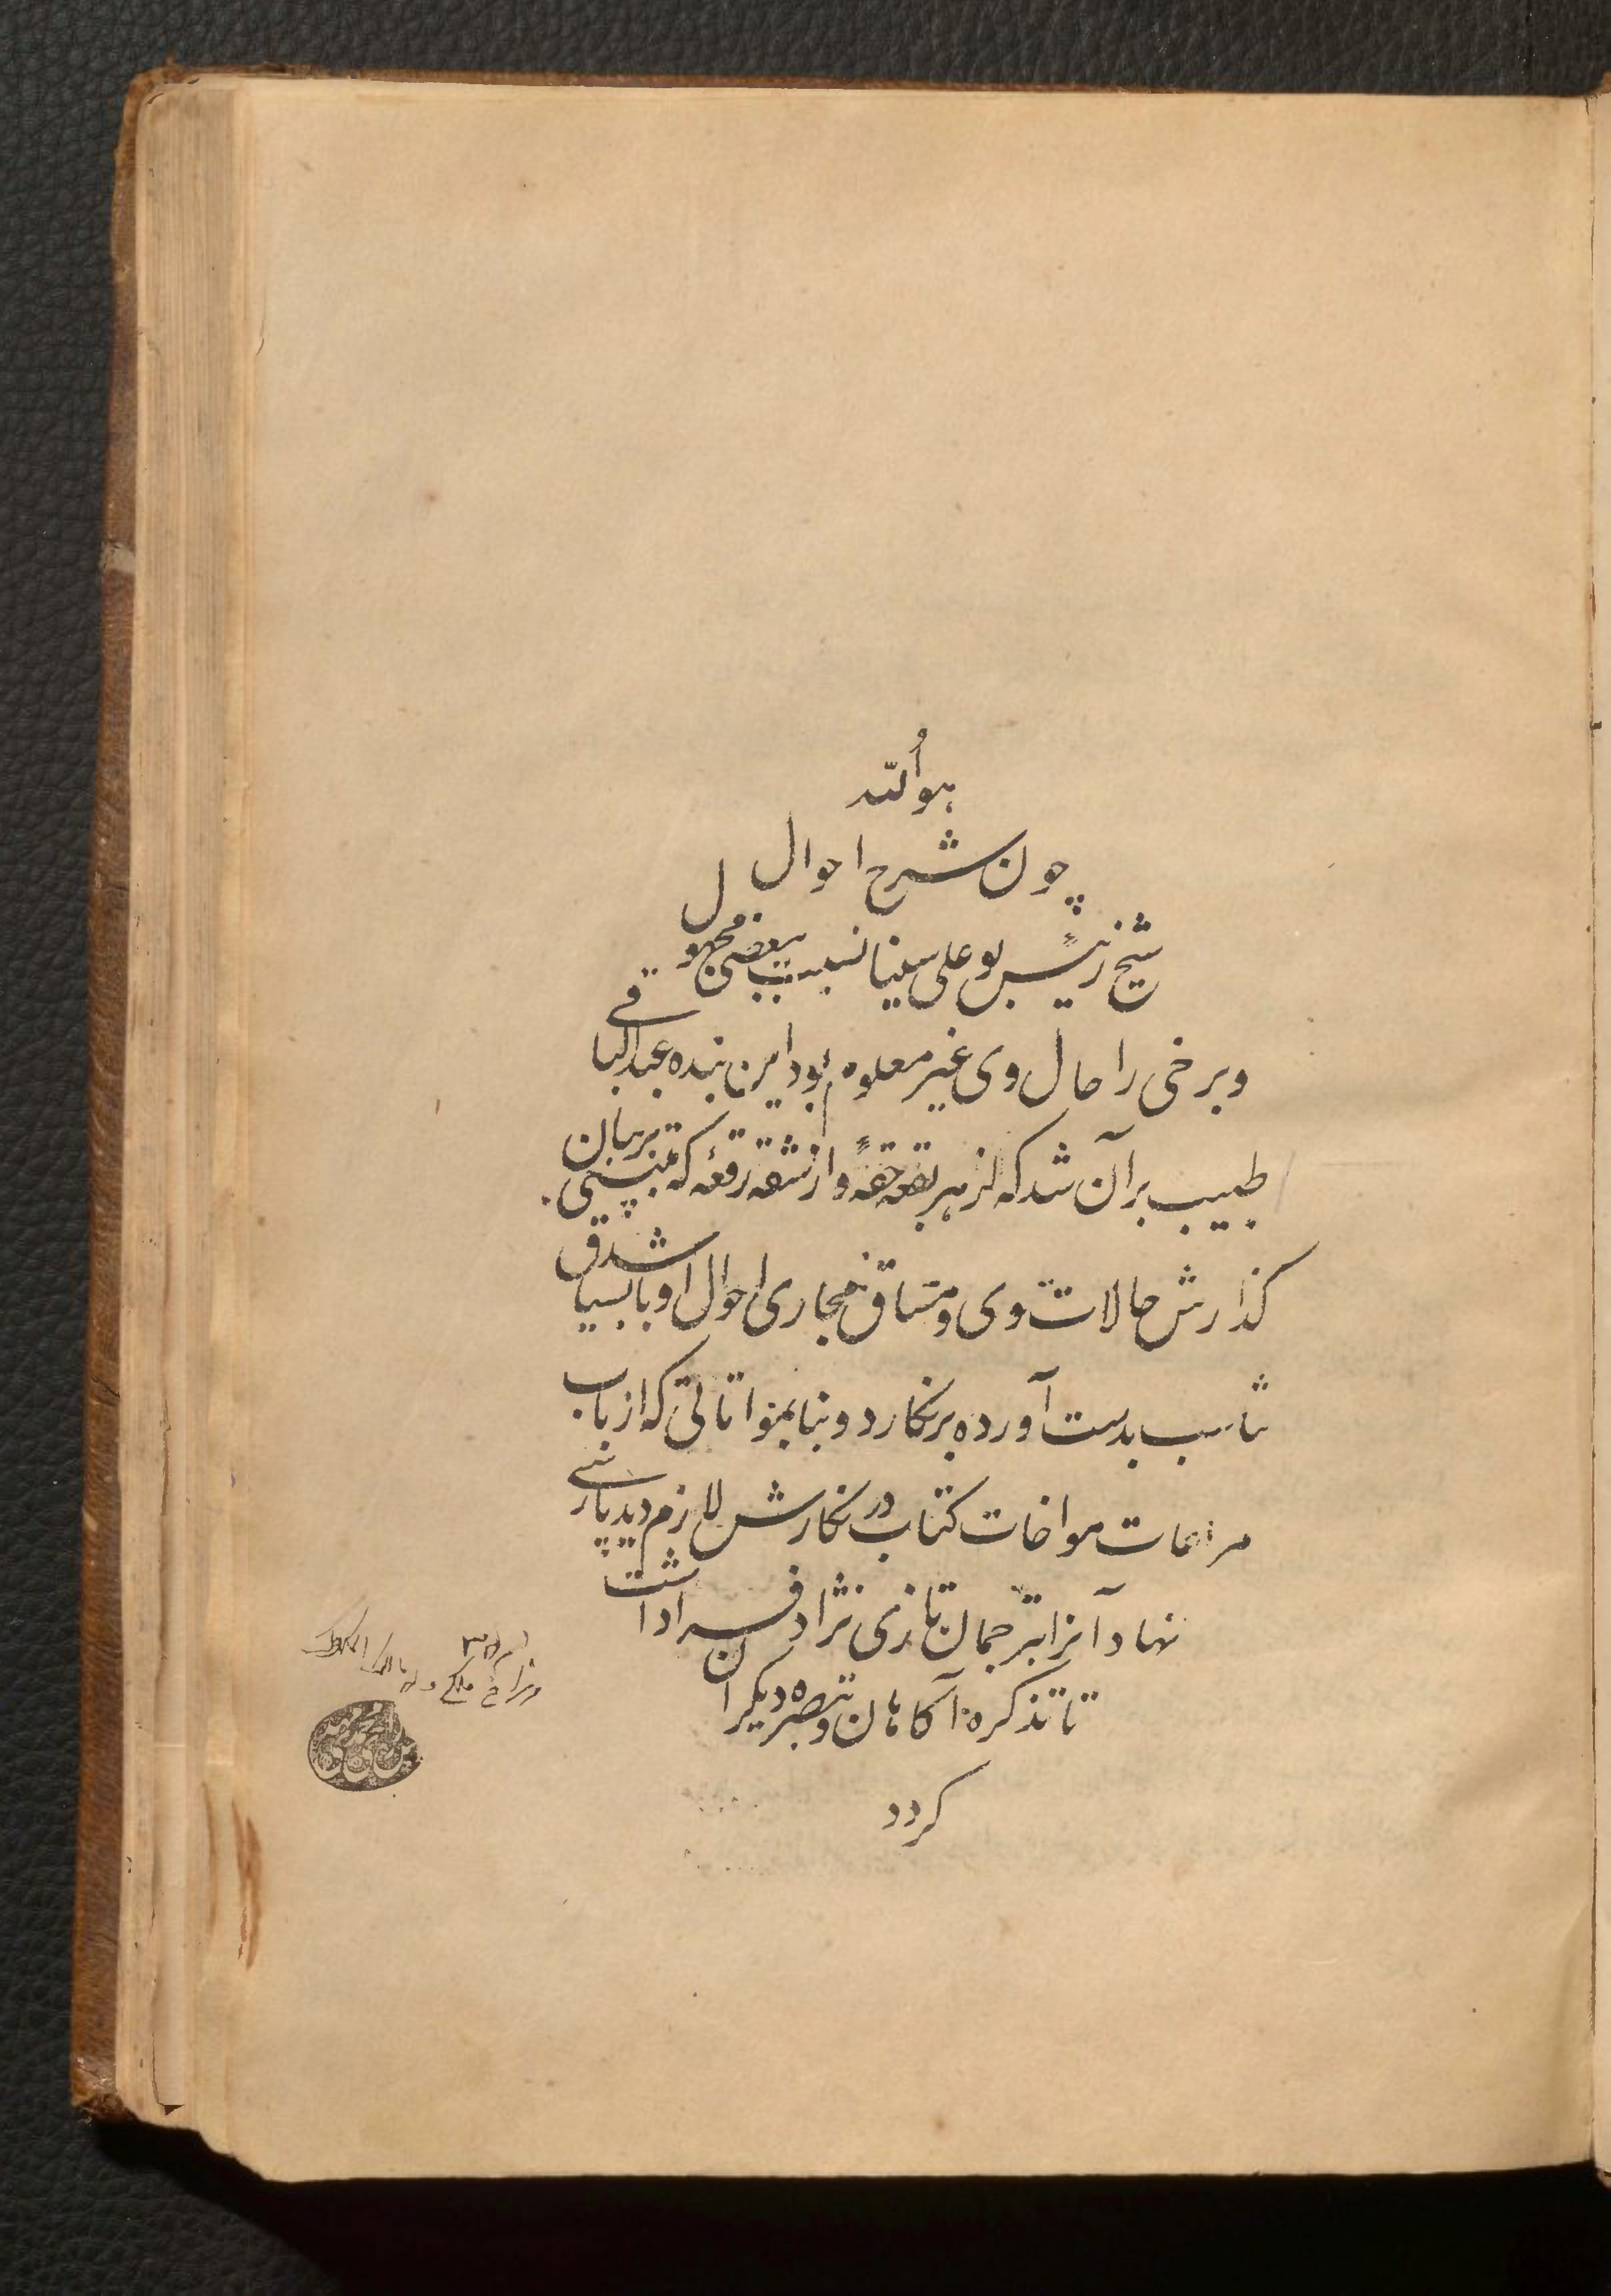 هو الله
چون شرح احوال
شیخ رئیس بو علی سینا نسبت ببعضی مجهول
و برخی را حال وی غیر معلوم بود این بنده عبدالباقی
طبیب بر آن شد که از هر بقعه حقهٔ و از شقه رقعهٔ که تبیان
گذارش حالات وی و متساق مجاری احوال او با سیاق
مناسب بدست آورده برنگارد و بنا بمواتاتی که از باب
مراعات مواخات کتاب در نگارش لازم دید پارسی
نهاد آنرا بترجمان تازی نژاد فرا داشت
تا تذکره آگاهان و تبصره دیگران
گردد